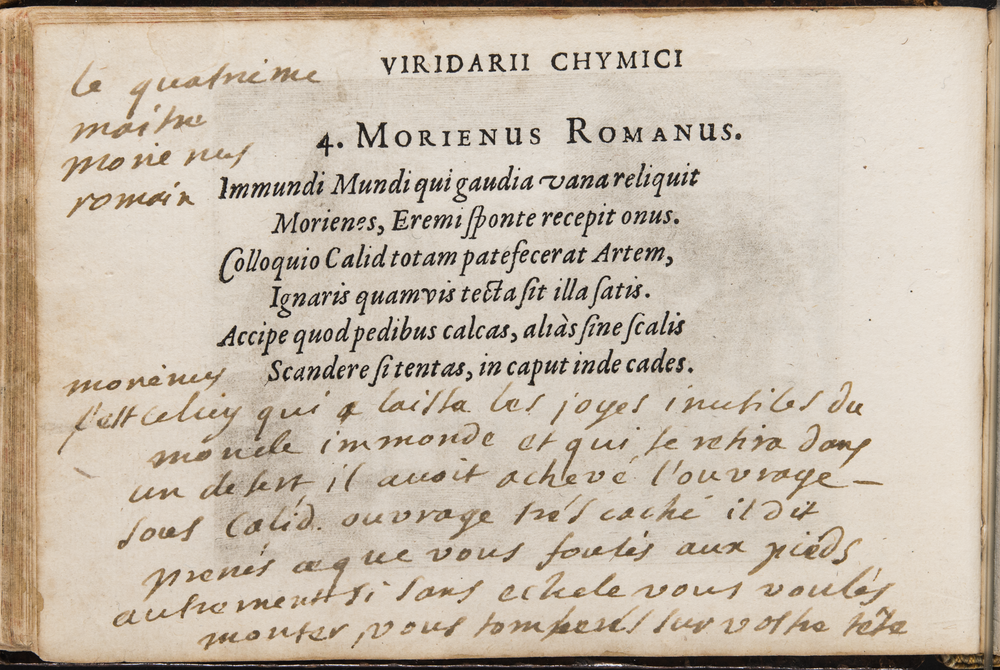 VIRIDARII CHYMICI
le quatrieme
maitre
morienus
romain
4. MORIENUS ROMANUS.
Immundi Mundi qui gaudia vana reliquit
Morienes, Eremi ſponte recepit onus.
Colloquio Calid totam patefecerat Artem,
Ignaris quamvis tecta ſit illa ſatis.
Accipe quod pedibus calcas, aliàs ſine ſcalis
Scandere ſi tentas, in caput inde cades.
morienus
c'est celuy qui a laissa les joyes inutiles du
monde immonde et qui se retira dans
un desert il avoit achevé l'ouvrage –
sous Calid. ouvrage trés caché il dit
prenés ce que vous foulés aux pieds
autrement si sans echele vous voulés
monter, vous tomberés sur vostre tete